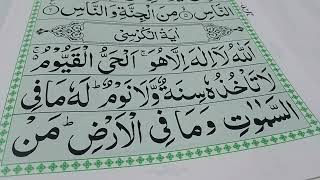 النَّاسِ ۝ مِنَ الْجِنَّةِ وَالنَّاسِ ۝
اٰيَةُ الْكُرْسِىْ
اَللّٰهُ لَاۤ اِلٰهَ اِلَّا هُوَ ۚ اَلْحَىُّ الْقَيُّوْمُ ۚ
لَا تَاْخُذُهٗ سِنَةٌ وَّلَا نَوْمٌ ؕ لَهٗ مَا فِى
السَّمٰوٰتِ وَمَا فِى الْاَرْضِ ؕ مَنْ